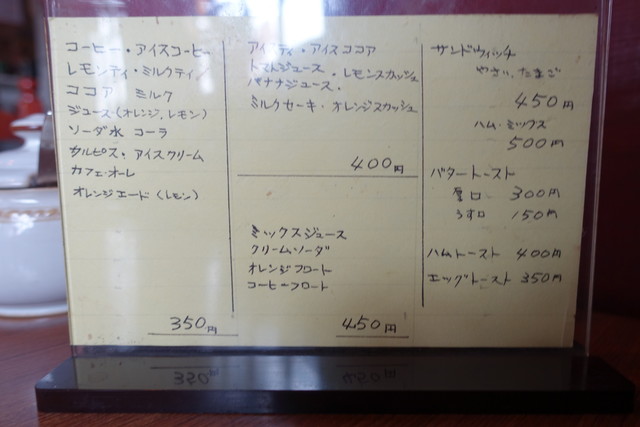 コーヒー・アイスコーヒー
レモンティ・ミルクティ
ココア ミルク
ジュース(オレンジ,レモン)
ソーダ水 コーラ
カルピス・アイスクリーム
カフェ・オーレ
オレンジエード(レモン)
350円
アイスティ・アイスココア
トマトジュース・レモンスカッシュ
バナナジュース・
ミルクセーキ・オレンジスカッシュ
400円
ミックスジュース
クリームソーダ
オレンジフロート
コーヒーフロート
450円
サンドウィッチ
やさい,たまご
450円
ハム・ミックス
500円
バタートースト
厚口 300円
うす口 150円
ハムトースト 400円
エッグトースト 350円